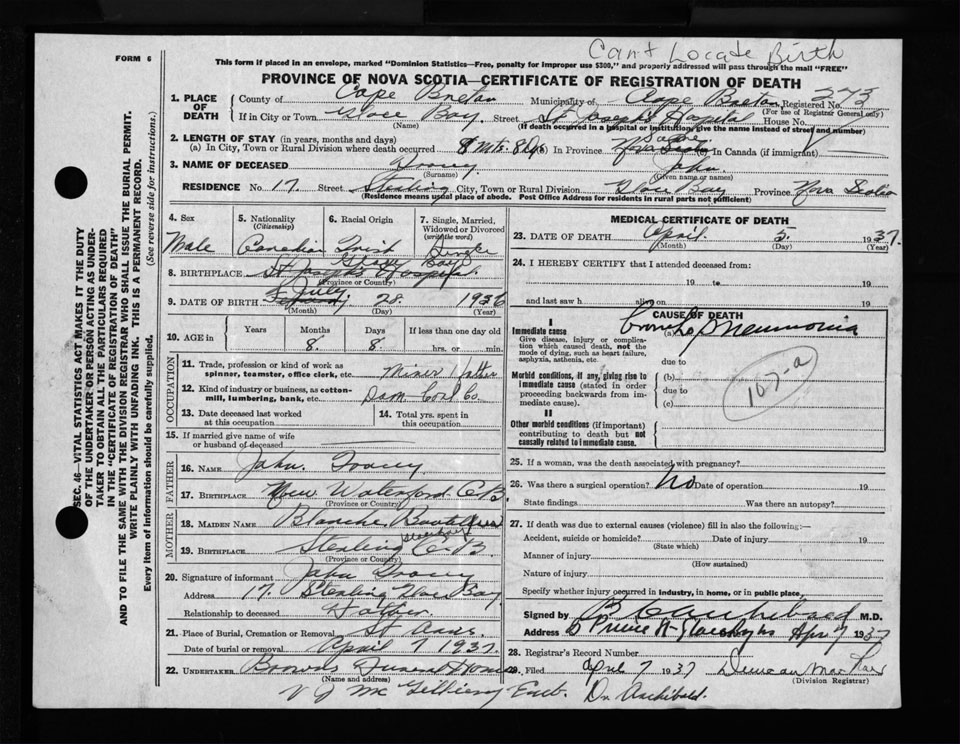 Can't Locate Birth
FORM 6
This form if placed in an envelope, marked "Dominion Statistics—Free, penalty for improper use $300," and properly addressed will pass through the mail "FREE"
PROVINCE OF NOVA SCOTIA—CERTIFICATE OF REGISTRATION OF DEATH
1. PLACE OF DEATH
County of Cape Breton Municipality of Cape Breton Registered No. 273
(For use of Registrar General only)
If in City or Town Glace Bay Street St Josephs Hospital House No.
(Name) (If death occurred in a hospital or institution, give the name instead of street and number)
2. LENGTH OF STAY (in years, months and days)
(a) In City, Town or Rural Division where death occurred 8 Mts. 8 dys In Province Nova Scotia In Canada (if immigrant)
3. NAME OF DECEASED Tracey John
(Surname) (Given name or names)
RESIDENCE No. 17. Street Sterling City, Town or Rural Division Glace Bay Province Nova Scotia
(Residence means usual place of abode. Post Office Address for residents in rural parts not sufficient)
4. Sex Male
5. Nationality (Citizenship) Canadian
6. Racial Origin Irish
7. Single, Married, Widowed or Divorced (write the word) Single
8. BIRTHPLACE St Josephs Hospital. Glace Bay
(Province or Country)
9. DATE OF BIRTH July 28. 1936
(Month) (Day) (Year)
10. AGE in Years Months 8. Days 8. If less than one day old hrs. or min.
OCCUPATION
11. Trade, profession or kind of work as spinner, teamster, office clerk, etc. Miner father
12. Kind of industry or business, as cotton-mill, lumbering, bank, etc. Dom Coal Co.
13. Date deceased last worked at this occupation
14. Total yrs. spent in this occupation
15. If married give name of wife or husband of deceased
FATHER
16. NAME John Tracey
17. BIRTHPLACE New Waterford C.B.
(Province or Country)
MOTHER
18. MAIDEN NAME Blanche
19. BIRTHPLACE Sterling C.B.
(Province or Country)
20. Signature of informant John Tracey
Address 17. Sterling Glace Bay
Relationship to deceased Father.
21. Place of Burial, Cremation or Removal St Anns.
Date of burial or removal April 7 1937.
22. UNDERTAKER Browns Funeral Home
(Name and address)
V J Mc Gillivray Emb.
MEDICAL CERTIFICATE OF DEATH
23. DATE OF DEATH April. 5 1937.
(Month) (Day) (Year)
24. I HEREBY CERTIFY that I attended deceased from:
19 to 19
and last saw h alive on 19
CAUSE OF DEATH
I
Immediate cause (a) Broncho pneumonia
Give disease, injury or complication which caused death, not the mode of dying, such as heart failure, asphyxia, asthenia, etc.
due to
Morbid conditions, if any, giving rise to immediate cause (stated in order proceeding backwards from immediate cause).
(b)
due to
(c)
107-a
II
Other morbid conditions (if important) contributing to death but not causally related to immediate cause.
25. If a woman, was the death associated with pregnancy?
26. Was there a surgical operation? No Date of operation 19
State findings Was there an autopsy?
27. If death was due to external causes (violence) fill in also the following:—
Accident, suicide or homicide? Date of injury 19
(State which)
Manner of injury
(How sustained)
Nature of injury
Specify whether injury occurred in industry, in home, or in public place,
Signed by Archibald M.D.
Address Glace Bay NS Apr 7 1937
28. Registrar's Record Number
29. Filed April 7 1937 Duncan
(Division Registrar)
Dr Archibald.
SEC. 46—VITAL STATISTICS ACT MAKES IT THE DUTY
OF THE UNDERTAKER OR PERSON ACTING AS UNDER-
TAKER TO OBTAIN ALL THE PARTICULARS REQUIRED
IN THE "CERTIFICATE OF REGISTRATION OF DEATH"
AND TO FILE THE SAME WITH THE DIVISION REGISTRAR WHO SHALL ISSUE THE BURIAL PERMIT.
WRITE PLAINLY WITH UNFADING INK. THIS IS A PERMANENT RECORD.
Every item of information should be carefully supplied. (See reverse side for instructions.)